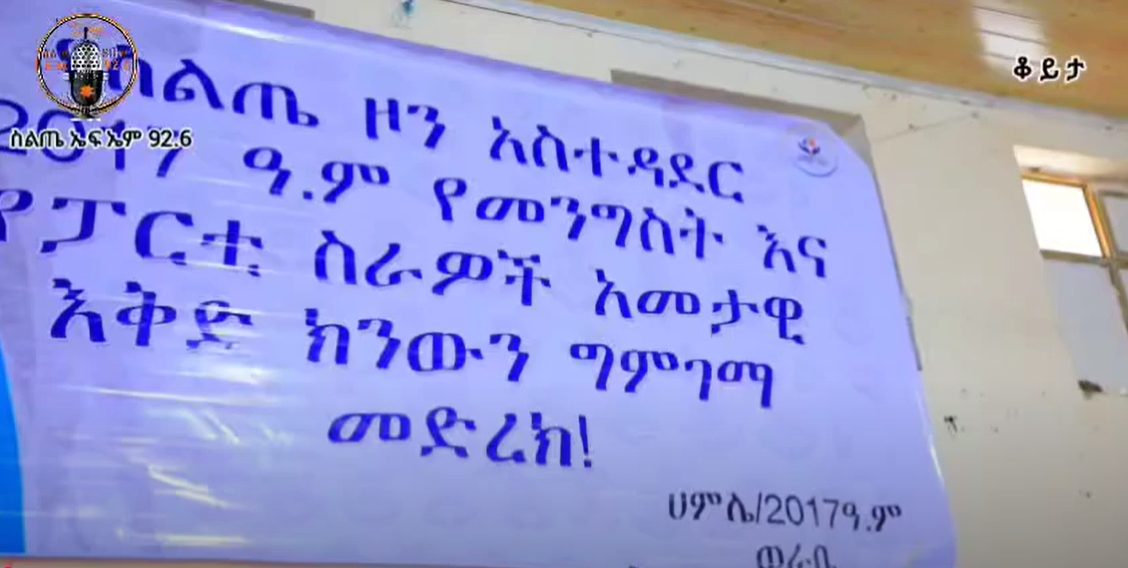 ቆይታ
ስልጤ ኤፍ ኤም 92.6
በስልጤ ዞን አስተዳደር
2017 ዓ.ም የመንግስት እና
የፓርቲ ስራዎች አመታዊ
እቅድ ክንውን ግምገማ
መድረክ!
ሀምሌ/2017ዓ.ም
ወራቤ